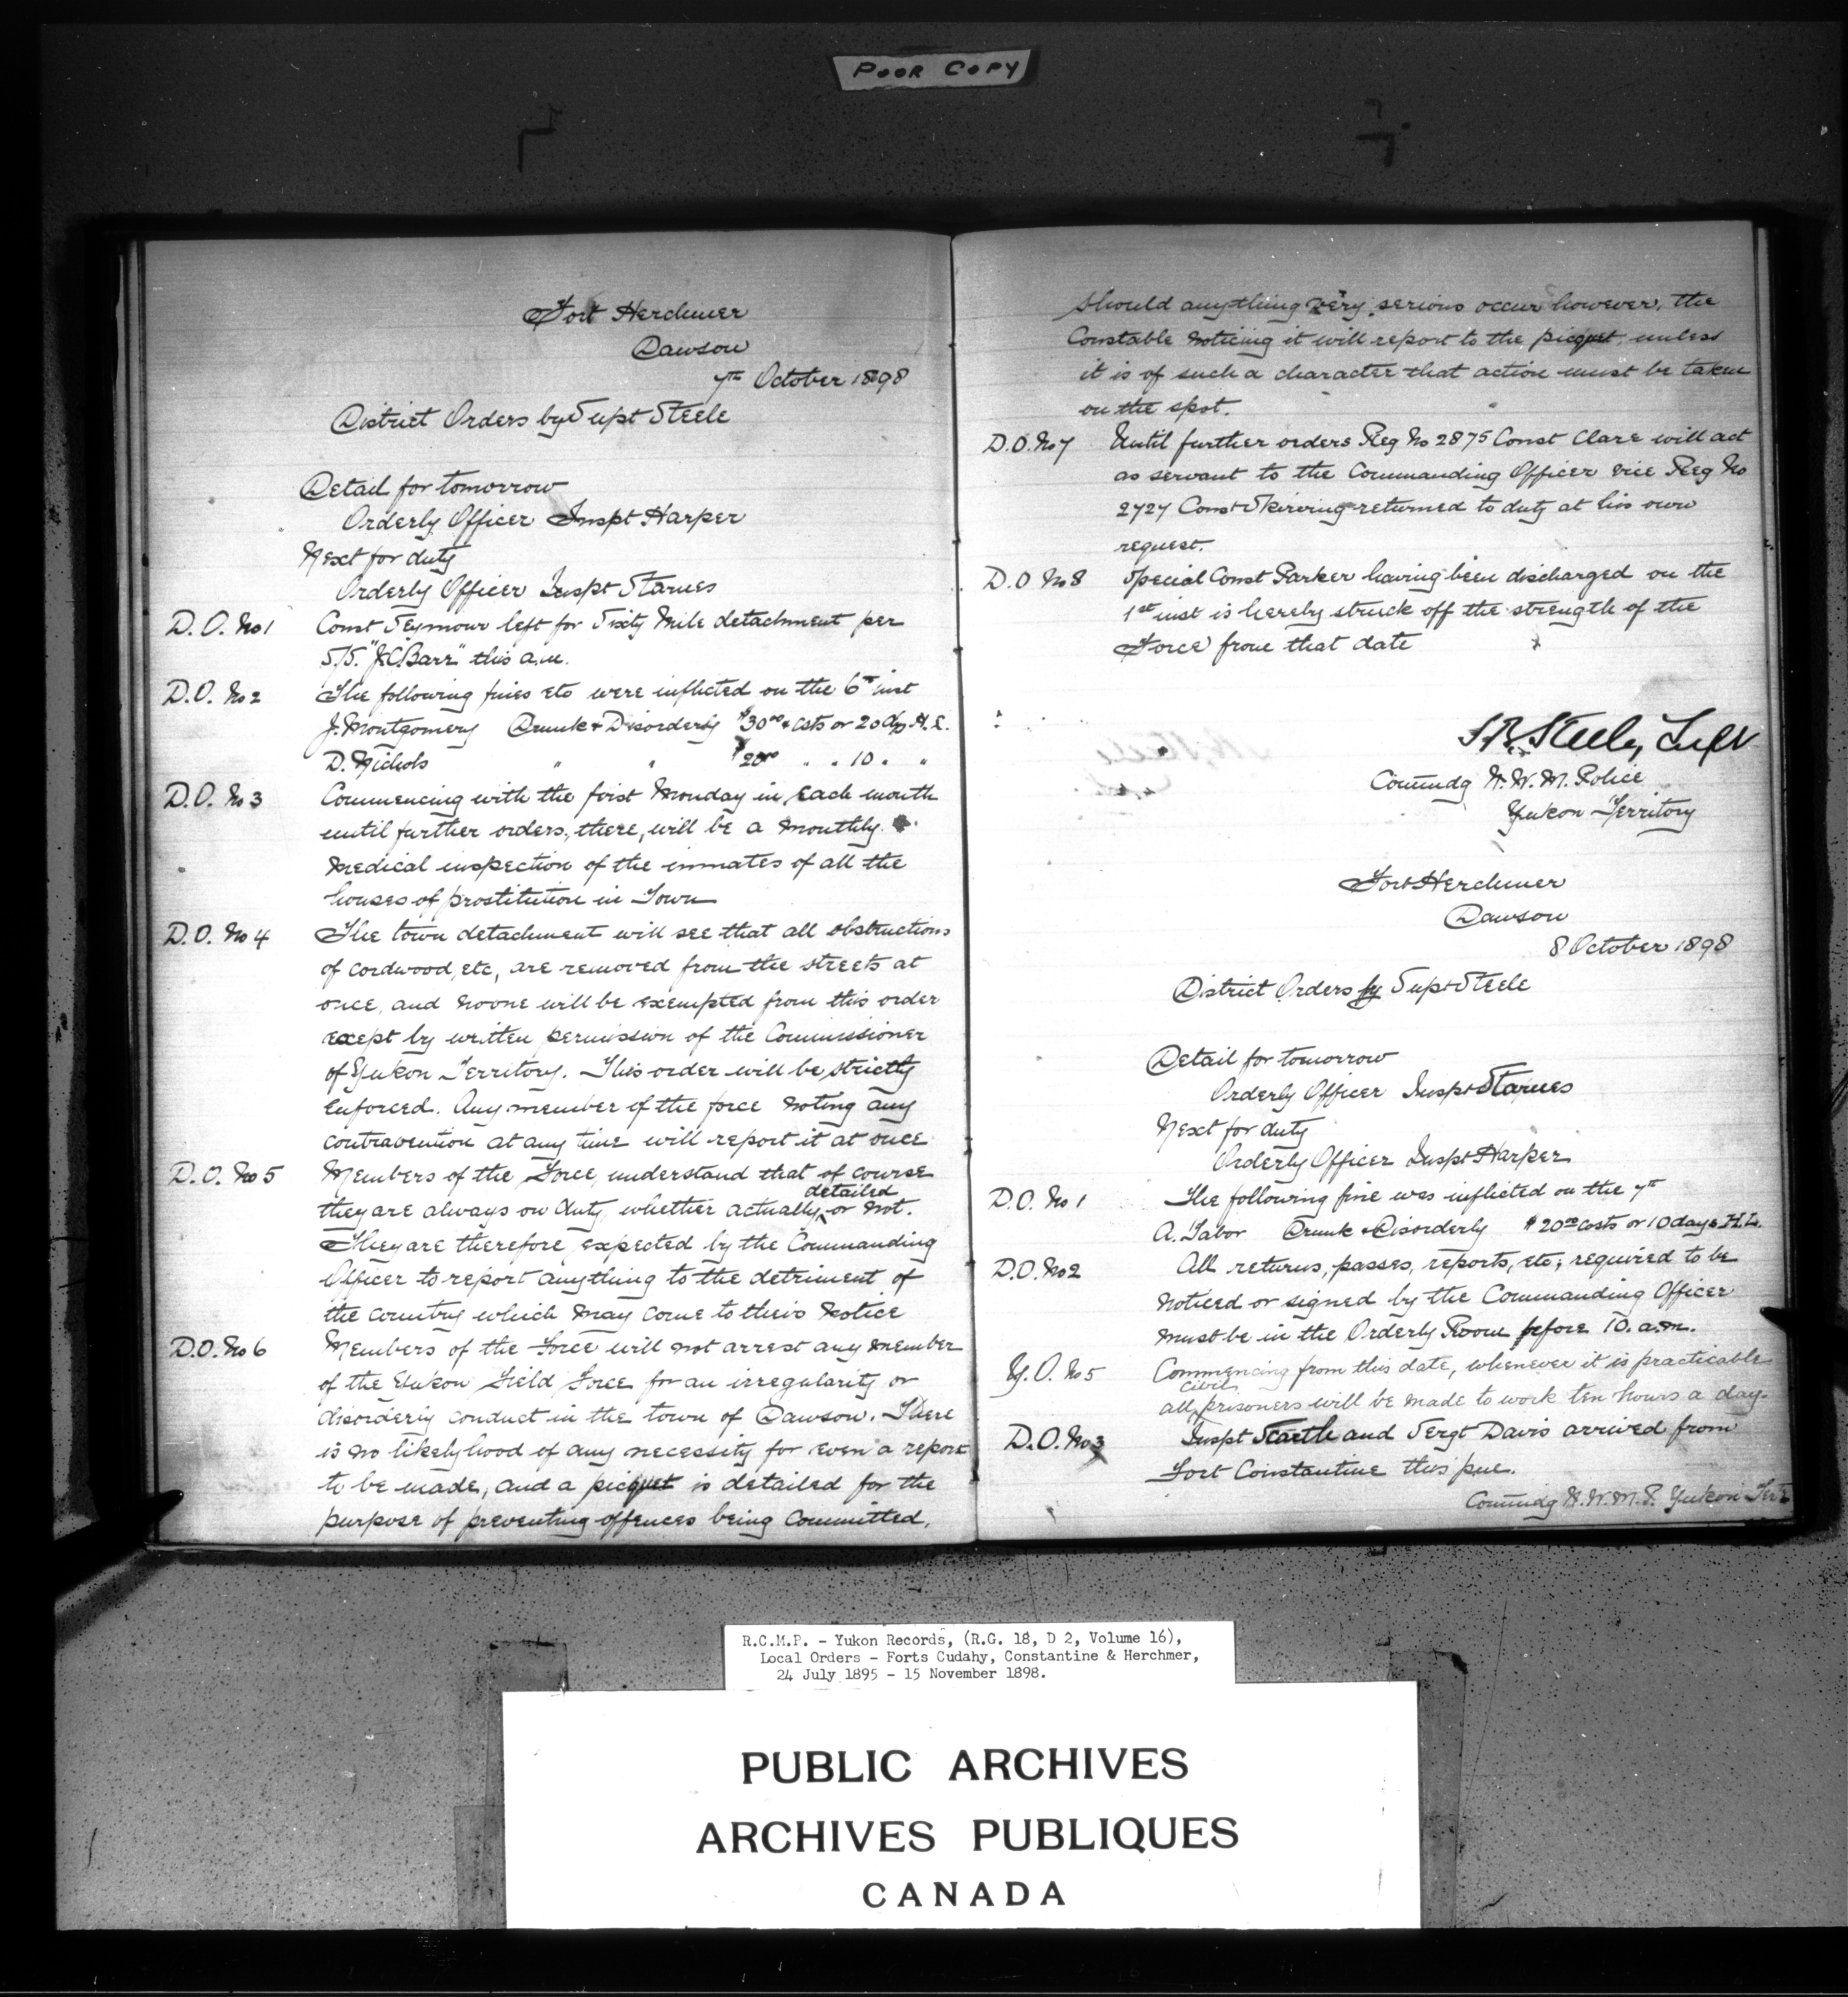 POOR COPY
Fort Herchmer
Dawson
7th October 1898
District Orders by Supt Steele
Detail for tomorrow
Orderly Officer Inspt Harper
Next for duty
Orderly Officer Inspt Starnes
D.O. No 1 Const Seymour left for Sixty Mile detachment per
S/S. "J.C. Barr" this a.m.
D.O. No 2 The following fines etc were inflicted on the 6th inst
J. Montgomery Drunk & Disorderly $30.00 & costs or 20 dys H.L.
D. Nichols " " $20.00 " " 10 " "
D.O. No 3 Commencing with the first Monday in each month
until further orders, there, will be a monthly
medical inspection of the inmates of all the
houses of prostitution in Town
D.O. No 4 The town detachment will see that all obstructions
of cordwood, etc, are removed from the streets at
once, and no one will be exempted from this order
except by written permission of the Commissioner
of Yukon Territory. This order will be strictly
enforced. Any member of the force noting any
contravention at any time will report it at once
D.O. No 5 Members of the Force, understand that of course
they are always on duty, whether actually detailed or not.
They are therefore expected by the Commanding
Officer to report anything to the detriment of
the country which may come to their notice
D.O. No 6 Members of the Force will not arrest any member
of the Yukon Field Force for an irregularity or
disorderly conduct in the town of Dawson. There
is no likelyhood of any necessity for even a report
to be made, and a picquet is detailed for the
purpose of preventing offences being committed,
should anything very serious occur however, the
Constable noticing it will report to the picquet, unless
it is of such a character that action must be taken
on the spot.
D.O. No 7 Until further orders Reg No 2875 Const Clare will act
as servant to the Commanding Officer vice Reg No
2727 Const Skirving returned to duty at his own
request.
D.O No 8 Special Const Parker having been discharged on the
1st inst is hereby struck off the strength of the
Force from that date
S.B. Steele, Supt
Commdg N.W.M. Police
Yukon Territory
Fort Herchmer
Dawson
8 October 1898
District Orders by Supt Steele
Detail for tomorrow
Orderly Officer Inspt Starnes
Next for duty
Orderly Officer Inspt Harper
D.O. No 1 The following fine was inflicted on the 7th
A. Tabor Drunk & Disorderly $20.00 costs or 10 days H.L.
D.O. No 2 All returns, passes, reports, etc; required to be
noticed or signed by the Commanding Officer
must be in the Orderly Room before 10. a.m.
Y.O. No 5 Commencing from this date, whenever it is practicable
all civil prisoners will be made to work ten hours a day.
D.O. No 3 Inspt Scarth and Sergt Davis arrived from
Fort Constantine this pm.
Commdg N.W.M.P. Yukon Terr
R.C.M.P. - Yukon Records, (R.G. 18, D 2, Volume 16),
Local Orders - Forts Cudahy, Constantine & Herchmer,
24 July 1895 - 15 November 1898.
PUBLIC ARCHIVES
ARCHIVES PUBLIQUES
CANADA